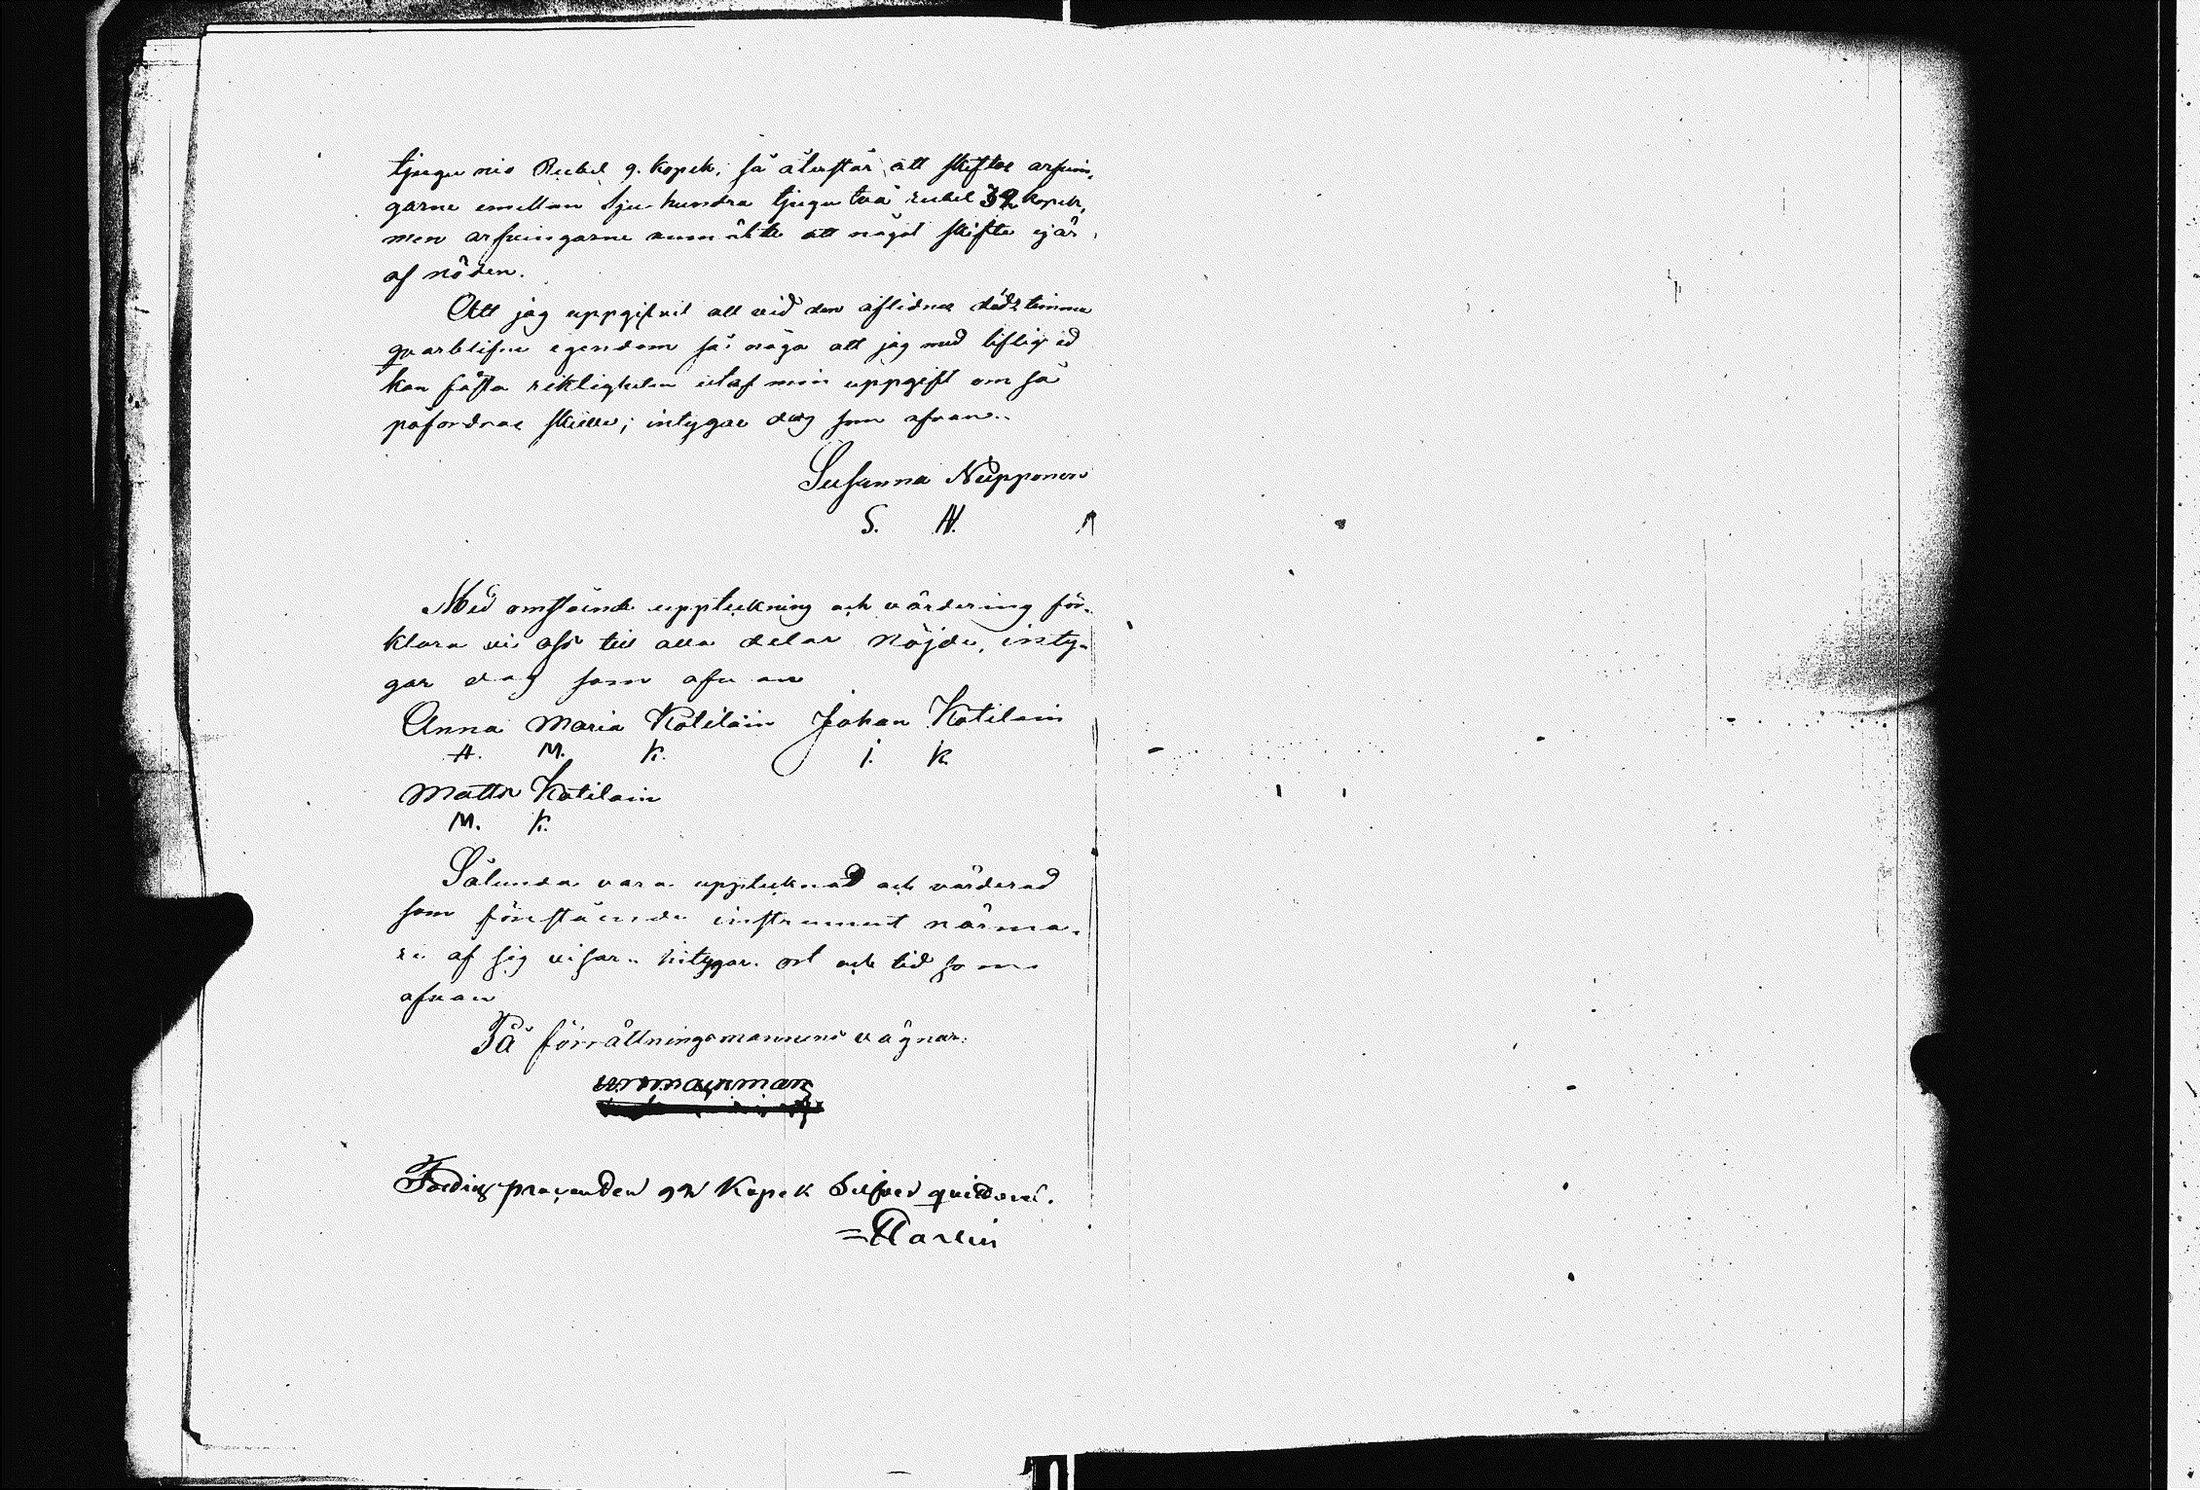 tjugu nio Rubel 9. kopek, så återstår att skiftas arfvin,
garne emellan sju hundra tjugu två rubel 32 kopek,
men arfvingarne anmälte att något skifte ej är
af nöden.
Att jag uppgifvit all vid den aflidnes dödstimma
qvarblifne egendom så noga att jag med liflig ed
kan fästa riktigheten utaf min uppgift om så
påfordras skulle; intygar dag som ofvan.
Susanna Nupponen
S. N.
Med omstående uppteckning och värdering för-
klara vi oss till alla delar nöjde, inty-
gar dag som ofvan
Anna Maria Kotilain Johan Kotilain
A. M. K. J. K.
Matts Kotilain
M. K.
Sålunda vara upptecknad och värderad
som förestående instrument närma-
re af sig visar, intygar ort och tid som
ofvan
På förrättningsmannens vägnar:
Fattigprocenten 92 Kopek Silfver qvitteras.